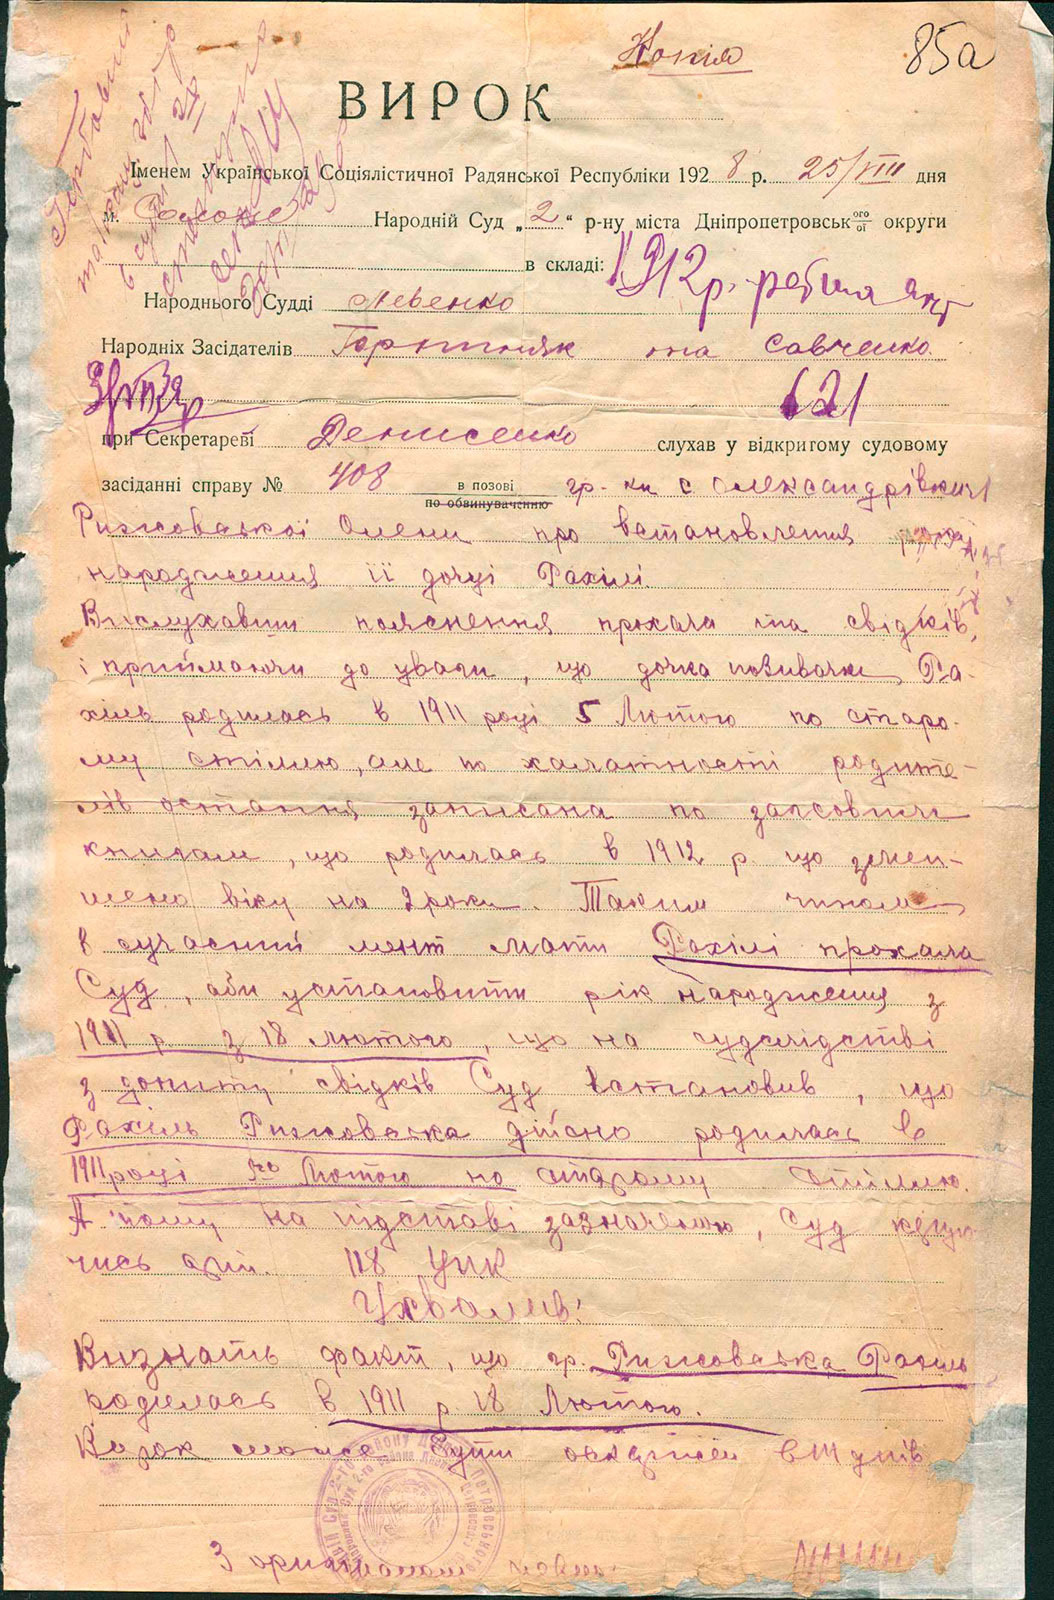 Копія
85а
ВИРОК
Іменем Української Соціялістичної Радянської Республіки 1928 р. 25/VIII дня
м. Народній Суд „2“ р-ну міста Дніпропетровськ ого ої округи
в складі:
1912 р.
Народнього Судді Левенко
Народніх Засідателів та Савченко
121
при Секретареві Денисенко слухав у відкритому судовому
засіданні справу № 408 в позові по обвинуваченню гр-ки с Олександрівки
Рижовської Олени про встановлення
народження її дочці Рахілі
Вислухавши пояснення прохача та свідків,
і приймаючи до уваги, що дочка позивачки Ра-
хіль родилась в 1911 році 5 Лютого по старо-
му стілю, але по халатності родите-
лів остання записана по
книгам, що родилась в 1912 р що змен-
шено віку на 2 роки. Таким чином
в сучасний мент мати Рахілі прохала
Суд, аби установити рік народження з
1911 р з 18 лютого, що на судслідстві
з допиту свідків Суд встановив, що
Рахіль Рижовська дійсно родилась в
1911 році Лютого по старому стілю.
А тому на підставі зазначеного, Суд керую-
чись арт. 118 ЦПК
Ухвалив:
Визнать факт, що гр. Рижовська Рахіль
родилась в 1911 р 18 Лютого.
Вирок може бути
З оригіналом